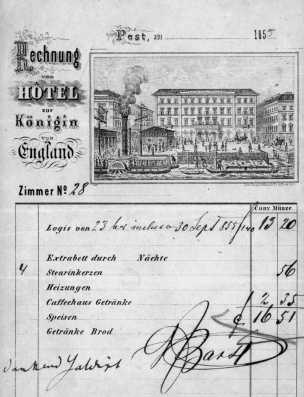 Rechnung
Pest, am 185
VOM
HÔTEL
zur
Königin
VON
England
Zimmer Nº 28
Conv. Münze
Logis von 23 bis inclusive 30 Sept 855 13 20
Extrabett durch Nächte
4 Stearinkerzen 56
Heizungen
Caffeehaus Getränke 2 35
Speisen 16 51
Getränke Brod